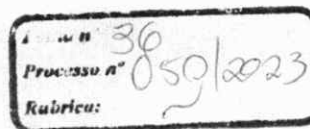 nº 36
Processo nº 059/2023
Rubrica: